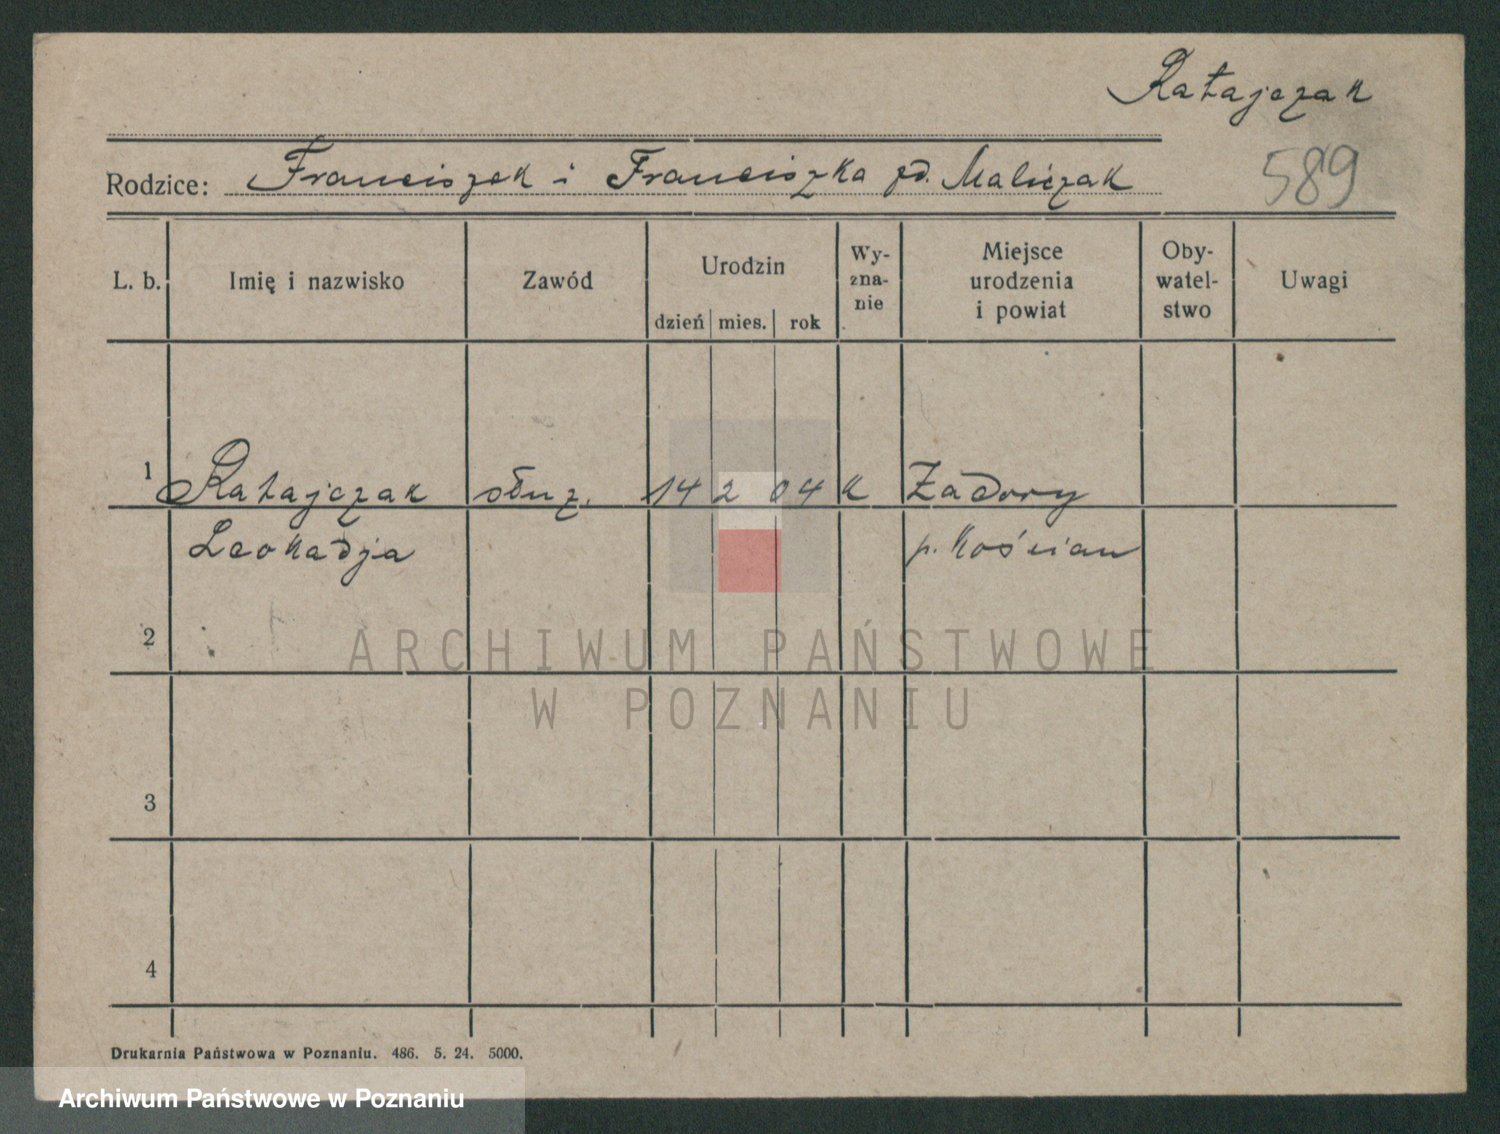 Ratajczak
Rodzice: Franciszek i Franciszka zd. Maliczak
589
L. b. Imię i nazwisko Zawód Urodzin dzień mies. rok Wy- zna- nie Miejsce urodzenia i powiat Oby- watel- stwo Uwagi
1 Ratajczak służ. 14 2 04 K Zadory
Leokadja p. Kościan
2
ARCHIWUM PAŃSTWOWE
W POZNANIU
3
4
Drukarnia Państwowa w Poznaniu. 486. 5. 24. 5000.
Archiwum Państwowe w Poznaniu